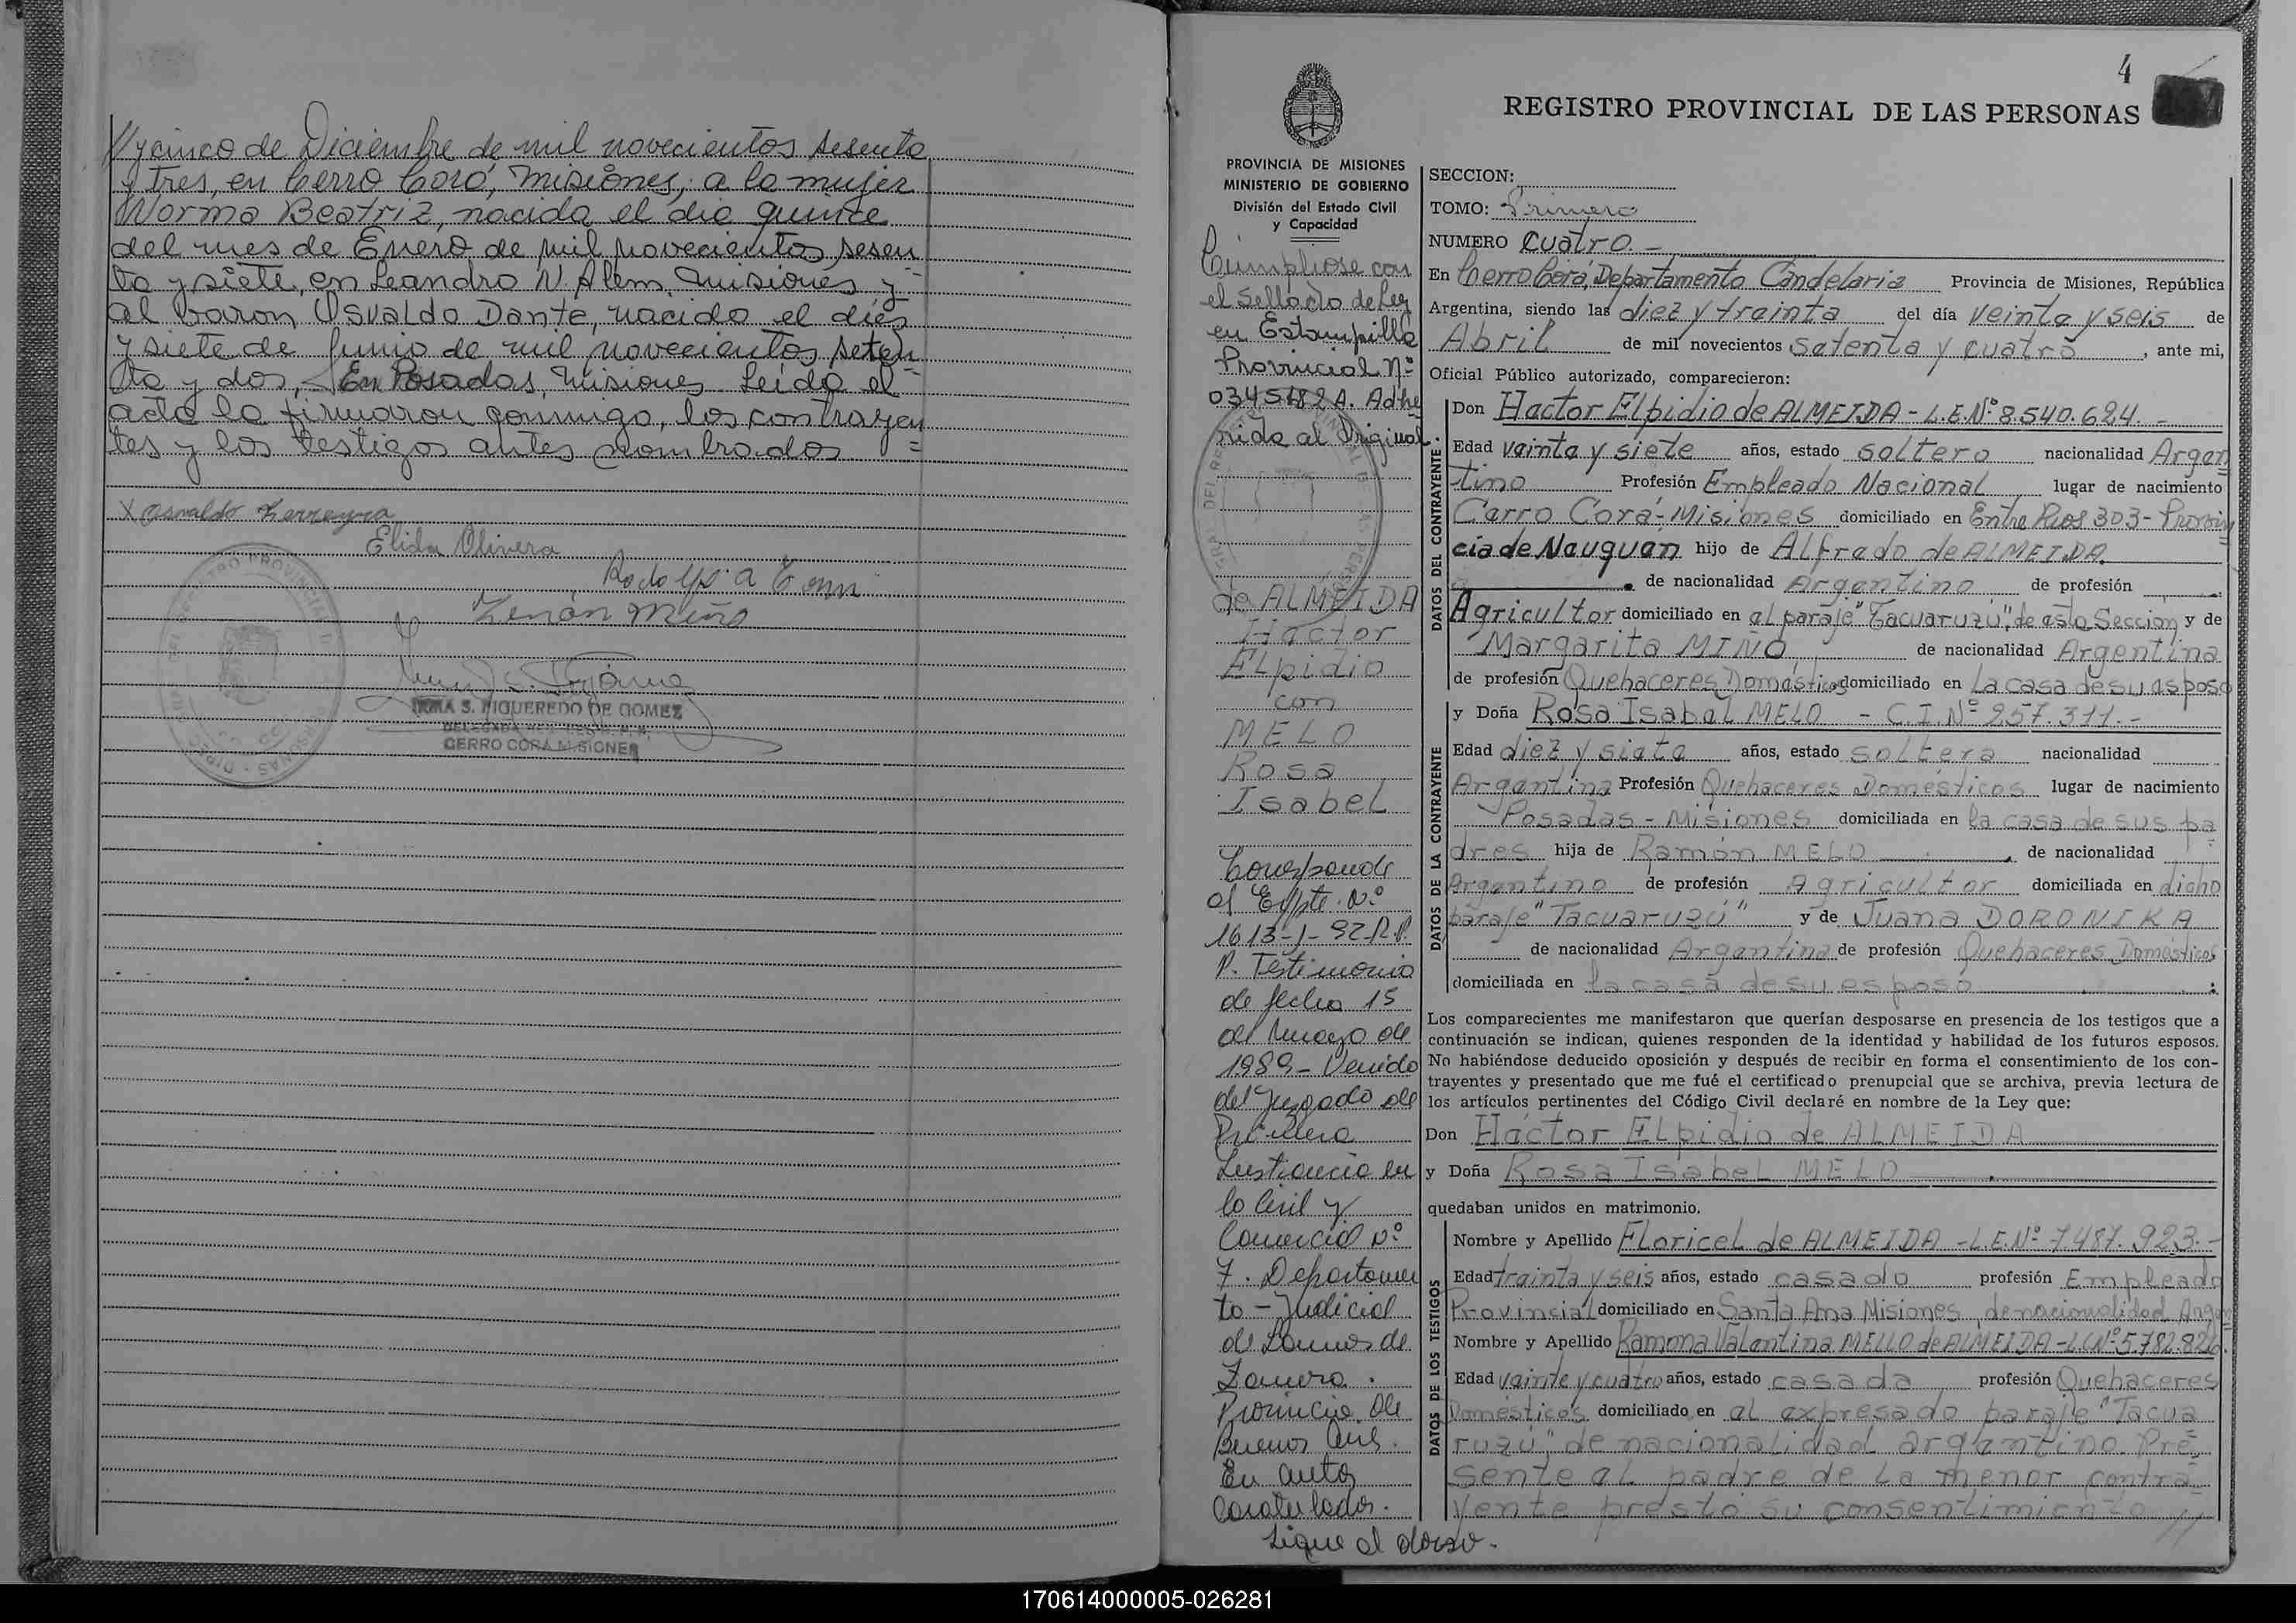 // y cinco de Diciembre de mil novecientos sesenta
y tres, en Cerro Corá, Misiones; a la mujer
Norma Beatriz, nacida el día quince
del mes de Enero de mil novecientos sesen
ta y siete, en Leandro N. Alem, Misiones y
al baron Osvaldo Dante, nacido el dies
y siete de Junio de mil novecientos seten
ta y dos, En Posadas, Misiones Leída el
acta la firmaron conmigo, los contrayen
tes y los testigos antes nombrados
X Osvaldo Ferreyra
Elida Olivera
Zenón Miño
IRMA S. FIGUEREDO DE GOMEZ
CERRO CORA MISIONES
4
REGISTRO PROVINCIAL DE LAS PERSONAS
PROVINCIA DE MISIONES
MINISTERIO DE GOBIERNO
División del Estado Civil
y Capacidad
Cumpliose con
el sellado de Ley
en Estampilla
Provincial Nº
0345182 A. Adhe
rida al Original.
de ALMEIDA
Hector
Elpidio
con
MELO
Rosa
Isabel
Corresponde
al Expte. Nº
1613-J-92 R.P.
P. Testimonio
de fecha 15
de Marzo de
1989- Venido
del Juzgado de
Primera
Instancia en
lo Civil y
Comercial Nº
7. Departamen
to - Judicial
de Lomas de
Zamora.
Provincia de
Buenos Aires.
En autos
Caratulados.
Sigue al dorso.
SECCION:
TOMO: Primero
NUMERO Cuatro.-
En Cerro Corá, Departamento Candelaria Provincia de Misiones, República
Argentina, siendo las diez y treinta del día veinte y seis de
Abril de mil novecientos setenta y cuatro, ante mi,
Oficial Público autorizado, comparecieron:
DATOS DEL CONTRAYENTE
Don Hector Elpidio de ALMEIDA - L.E.Nº 8.540.624.-
Edad veinte y siete años, estado soltero nacionalidad Argen
tino Profesión Empleado Nacional lugar de nacimiento
Cerro Corá-Misiones domiciliado en Entre Rios 303- Provin
cia de Neuquen hijo de Alfredo de ALMEIDA.
de nacionalidad Argentino de profesión
Agricultor domiciliado en el paraje "Tacuaruzú", de esta Sección y de
Margarita MIÑO de nacionalidad Argentina
de profesión Quehaceres Domésticos domiciliado en la casa de su esposo
DATOS DE LA CONTRAYENTE
y Doña Rosa Isabel MELO - C.I.Nº 257.311.-
Edad diez y siete años, estado soltera nacionalidad
Argentina Profesión Quehaceres Domésticos lugar de nacimiento
Posadas - Misiones domiciliada en la casa de sus pa
dres hija de Ramón MELO de nacionalidad
Argentino de profesión Agricultor domiciliada en dicho
paraje "Tacuaruzú" y de Juana DORONIKA
de nacionalidad Argentina de profesión Quehaceres Domésticos
domiciliada en la casa de su esposo
Los comparecientes me manifestaron que querían desposarse en presencia de los testigos que a
continuación se indican, quienes responden de la identidad y habilidad de los futuros esposos.
No habiéndose deducido oposición y después de recibir en forma el consentimiento de los con-
trayentes y presentado que me fué el certificado prenupcial que se archiva, previa lectura de
los artículos pertinentes del Código Civil declaré en nombre de la Ley que:
Don Hector Elpidio de ALMEIDA
y Doña Rosa Isabel MELO
quedaban unidos en matrimonio.
DATOS DE LOS TESTIGOS
Nombre y Apellido Floricel de ALMEIDA - L.E.Nº 7487.923.-
Edad treinta y seis años, estado casado profesión Empleado
Provincial domiciliado en Santa Ana Misiones, de nacionalidad Argen
Nombre y Apellido Ramona Valentina MELLO de ALMEIDA - L.C.Nº 5.782.826.
Edad veinte y cuatro años, estado casada profesión Quehaceres
Domésticos domiciliado en el expresado paraje "Tacua
ruzú", de nacionalidad argentino. Pre
sente el padre de la menor contra
yente presto su consentimiento //
170614000005-026281